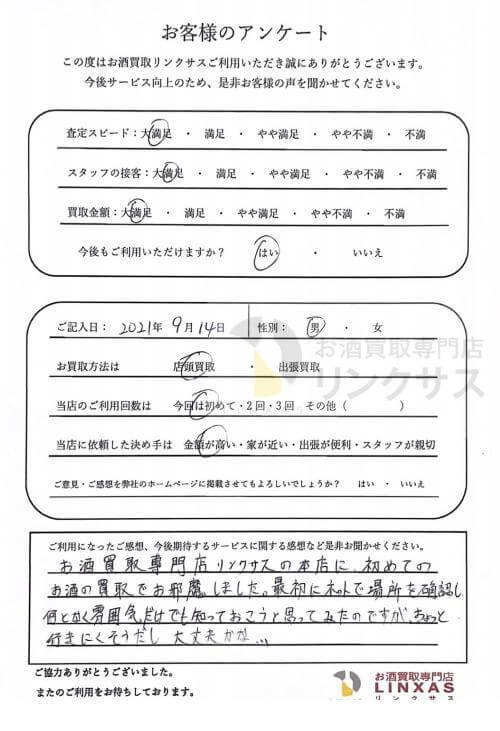 お客様のアンケート
この度はお酒買取リンクサスご利用いただき誠にありがとうございます。
今後サービス向上のため、是非お客様の声を聞かせてください。
査定スピード：大満足 ・ 満足 ・ やや満足 ・ やや不満 ・ 不満
スタッフの接客：大満足 ・ 満足 ・ やや満足 ・ やや不満 ・ 不満
買取金額：大満足 ・ 満足 ・ やや満足 ・ やや不満 ・ 不満
今後もご利用いただけますか？ はい ・ いいえ
ご記入日： 2021年 9月 14日 性別： 男 ・ 女
お買取方法は 店頭買取 ・ 出張買取
お酒買取専門店
リンクサス
当店のご利用回数は 今回は初めて・2回・3回 その他（ ）
当店に依頼した決め手は 金額が高い・家が近い・出張が便利・スタッフが親切
ご意見・ご感想を弊社のホームページに掲載させてもよろしいでしょうか？ はい ・ いいえ
ご利用になったご感想、今後期待するサービスに関する感想など是非お聞かせください。
お酒買取専門店リンクサスの本店に、初めての
お酒の買取でお邪魔しました。最初にネットで場所を確認し
何となく雰囲気だけでも知っておこうと思ってみたのですが、ちょっと
行きにくそうだし 大丈夫かな…
ご協力ありがとうございました。
またのご利用をお待ちしております。
お酒買取専門店
LINXAS
リンクサス